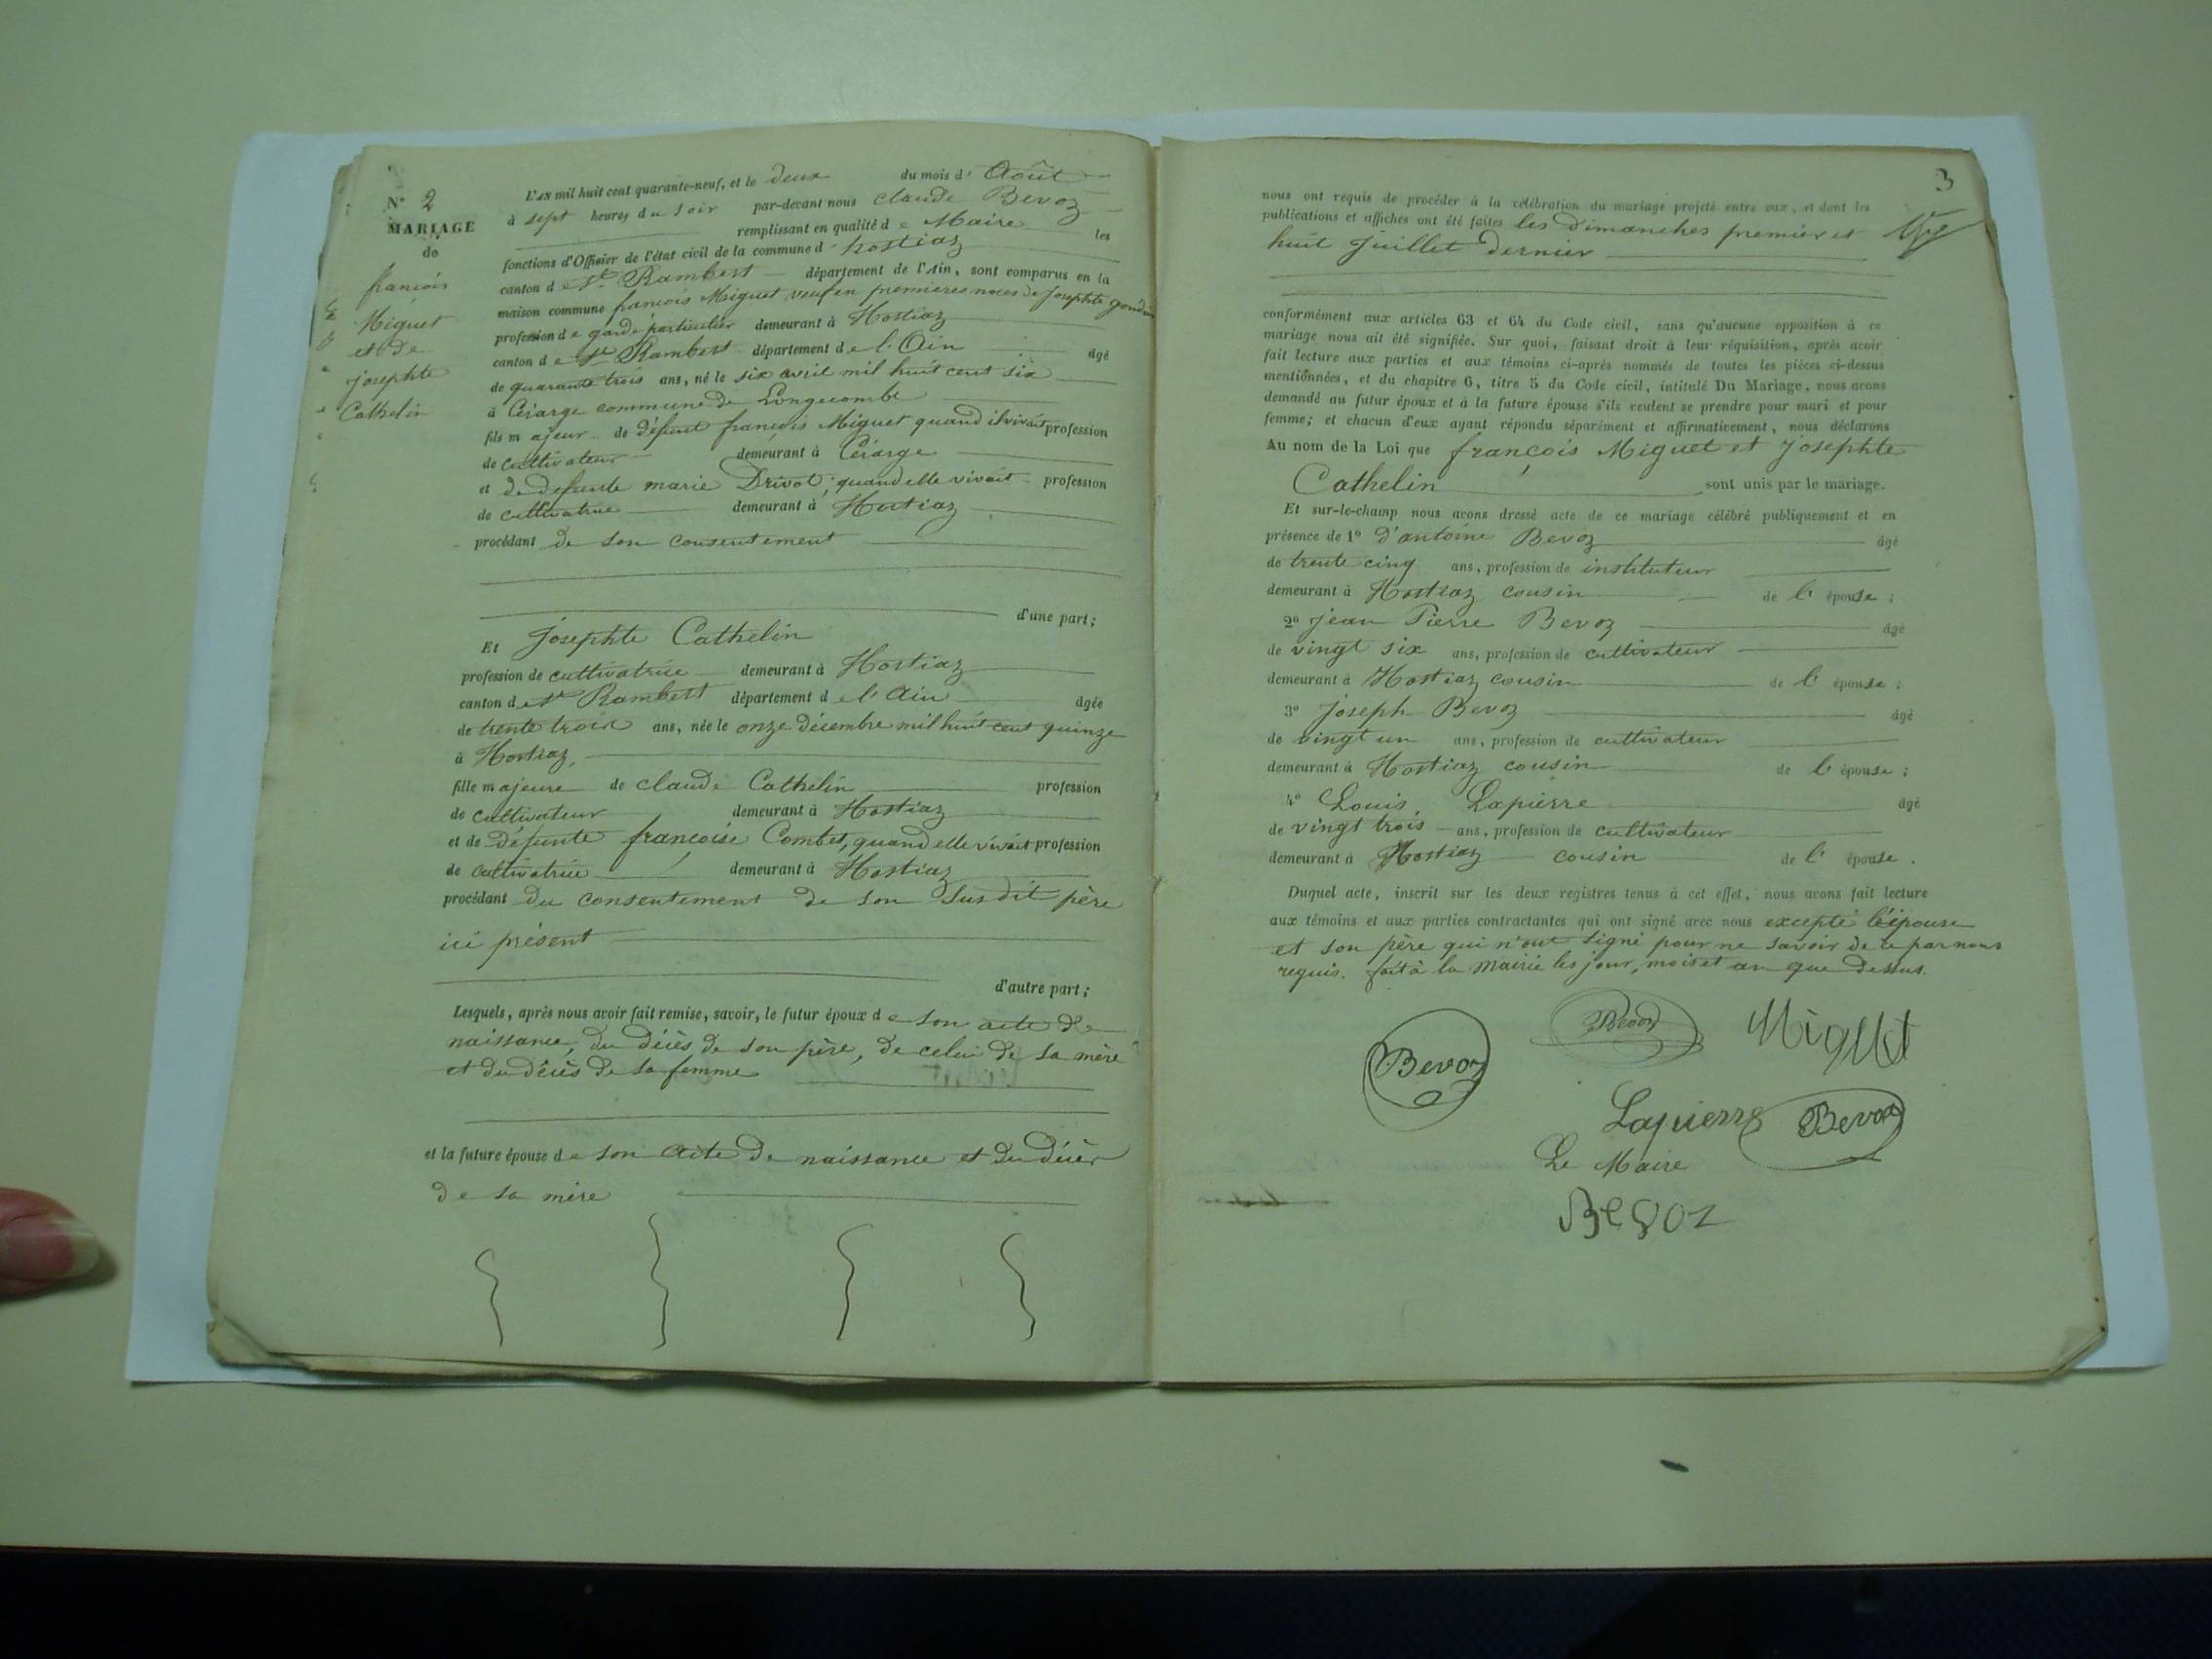 N° 2
MARIAGE
de
francois
Miguet
et de
Josephte
Cathelin
L'AN mil huit cent quarante-neuf, et le deux du mois d' Août
à sept heures du soir par-devant nous claude Bevoz
remplissant en qualité de Maire les
fonctions d'Officier de l'état civil de la commune d' hostiaz
canton de St Rambert département de l'Ain, sont comparus en la
maison commune francois Miguet, veuf en premieres noces de Josephte
profession de garde particulier demeurant à Hostiaz
canton de St Rambert département de l'Ain âgé
de quarante trois ans, né le six avril mil huit cent six
à Cérarge commune de Longecombe
fils majeur de défunt francois Miguet quand il vivait profession
de cultivateur demeurant à Cérarge
et de defunte marie Drivot, quand elle vivait profession
de cultivatrice demeurant à Hostiaz
procédant de son consentement
d'une part;
Et Josephte Cathelin
profession de cultivatrice demeurant à Hostiaz
canton de St Rambert département de l'Ain âgée
de trente trois ans, née le onze décembre mil huit cent quinze
à Hostiaz,
fille majeure de claude Cathelin profession
de cultivateur demeurant à Hostiaz
et de défunte francoise Combet, quand elle vivait profession
de cultivatrice demeurant à Hostiaz
procédant du consentement de son susdit père
ici présent
d'autre part;
Lesquels, après nous avoir fait remise, savoir, le futur époux de son acte de
naissance, du décès de son père, de celui de sa mère
et du décès de sa femme
et la future épouse de son acte de naissance et du décès
de sa mère
3
nous ont requis de procéder à la célébration du mariage projeté entre eux, et dont les
publications et affiches ont été faites les dimanches premier et
huit Juillet dernier
conformément aux articles 63 et 64 du Code civil, sans qu'aucune opposition à ce
mariage nous ait été signifiée. Sur quoi, faisant droit à leur réquisition, après avoir
fait lecture aux parties et aux témoins ci-après nommés de toutes les pièces ci-dessus
mentionnées, et du chapitre 6, titre 5 du Code civil, intitulé Du Mariage, nous avons
demandé au futur époux et à la future épouse s'ils veulent se prendre pour mari et pour
femme; et chacun d'eux ayant répondu séparément et affirmativement, nous déclarons
Au nom de la Loi que françois Miguet et Josephte
Cathelin sont unis par le mariage.
Et sur-le-champ nous avons dressé acte de ce mariage célébré publiquement et en
présence de 1° d'antoine Bevoz âgé
de trente cinq ans, profession de instituteur
demeurant à Hostiaz cousin de l' épouse;
2° Jean Pierre Bevoz âgé
de vingt six ans, profession de cultivateur
demeurant à Hostiaz cousin de l' épouse;
3° Joseph Bevoz âgé
de vingt un ans, profession de cultivateur
demeurant à Hostiaz cousin de l' épouse;
4° Louis Lapierre âgé
de vingt trois ans, profession de cultivateur
demeurant à Hostiaz cousin de l' épouse.
Duquel acte, inscrit sur les deux registres tenus à cet effet, nous avons fait lecture
aux témoins et aux parties contractantes qui ont signé avec nous excepté l'épouse
et son père qui n'ont signé pour ne savoir de ce par nous
requis. fait à la Mairie les jour, mois et an que dessus.
Bevoz Bevoz Miguet
Lapierre Bevoz
Le Maire
Bevoz